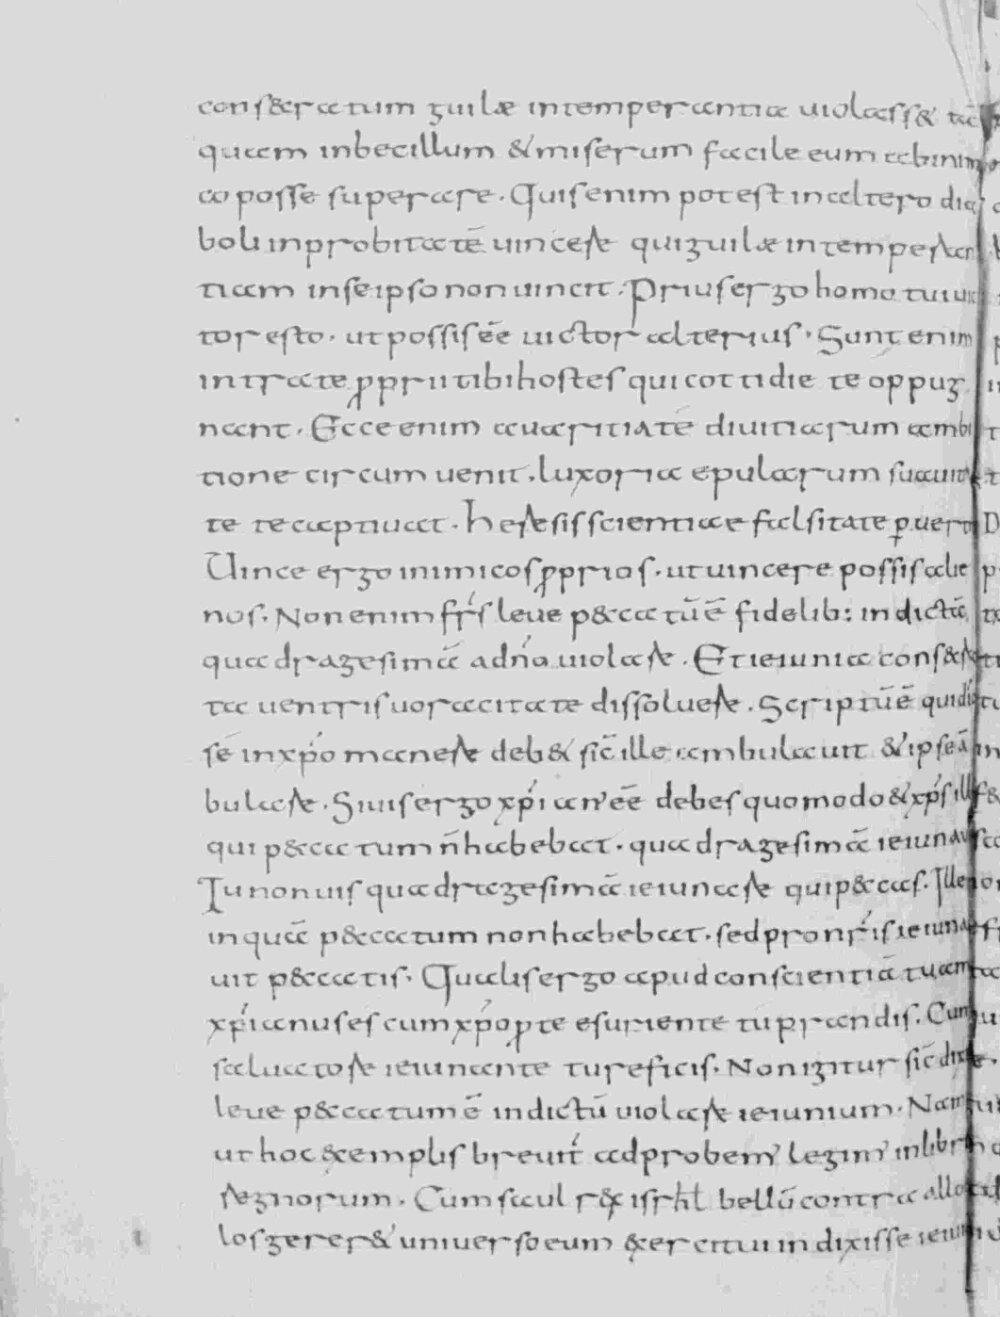 cons&ratum guilæ intemperantia uiolass& tā
quam inbecillum &miserum facile eum abinim
co posse superare. Quisenim potest inaltero dia
boli inprobitatē uincere quiguilæ intemperan
tiam inseipso non uincit. Prius ergo homo tui uic
tor esto. ut possis eē uictor alterius. Sunt enim
intrate pprii tibi hostes qui cottidie te oppug
nant. Ecce enim auaritia tē diuitiarum ambi
tione circumuenit. luxoria epularum suauita
te te captiuat. heresis scientiae falsitate puert
Uince ergo inimicos pprios. ut uincere possis alie
nos. Non enim frs leue p&catū ē fidelib: indictā
quadragesimā adno uiolare. Et ieiunia cons&ra
ta uentris uoracitate dissoluere. Scriptū ē quidi
sē inxpo manere deb& sic ille ambulauit &ipse ā
bulare. Siuis ergo xpian' eē debes quomodo & xps ill
qui p&catum n̄ habebat. quadragesimā ieiunau
Tu non uis quadragesimā ieiunare qui p&cas. Ille
inquā p&catum non habebat. sed pro nris ieiuna
uit p&catis. Qualis ergo apud conscientiā tuam
xpianus es cum xpo pte esuriente tu prandis. Cum
saluatore ieiunante tu reficis. Non igitur sic dic
leue p&catum ē indictū uiolare ieiunium. Nam
ut hoc &emplis breuit adprobem' legim' inlibr
regnorum. Cum saul r& isrhl bellū contra allo
los gerer& uniuerso eum &ercitui indixisse ieiun